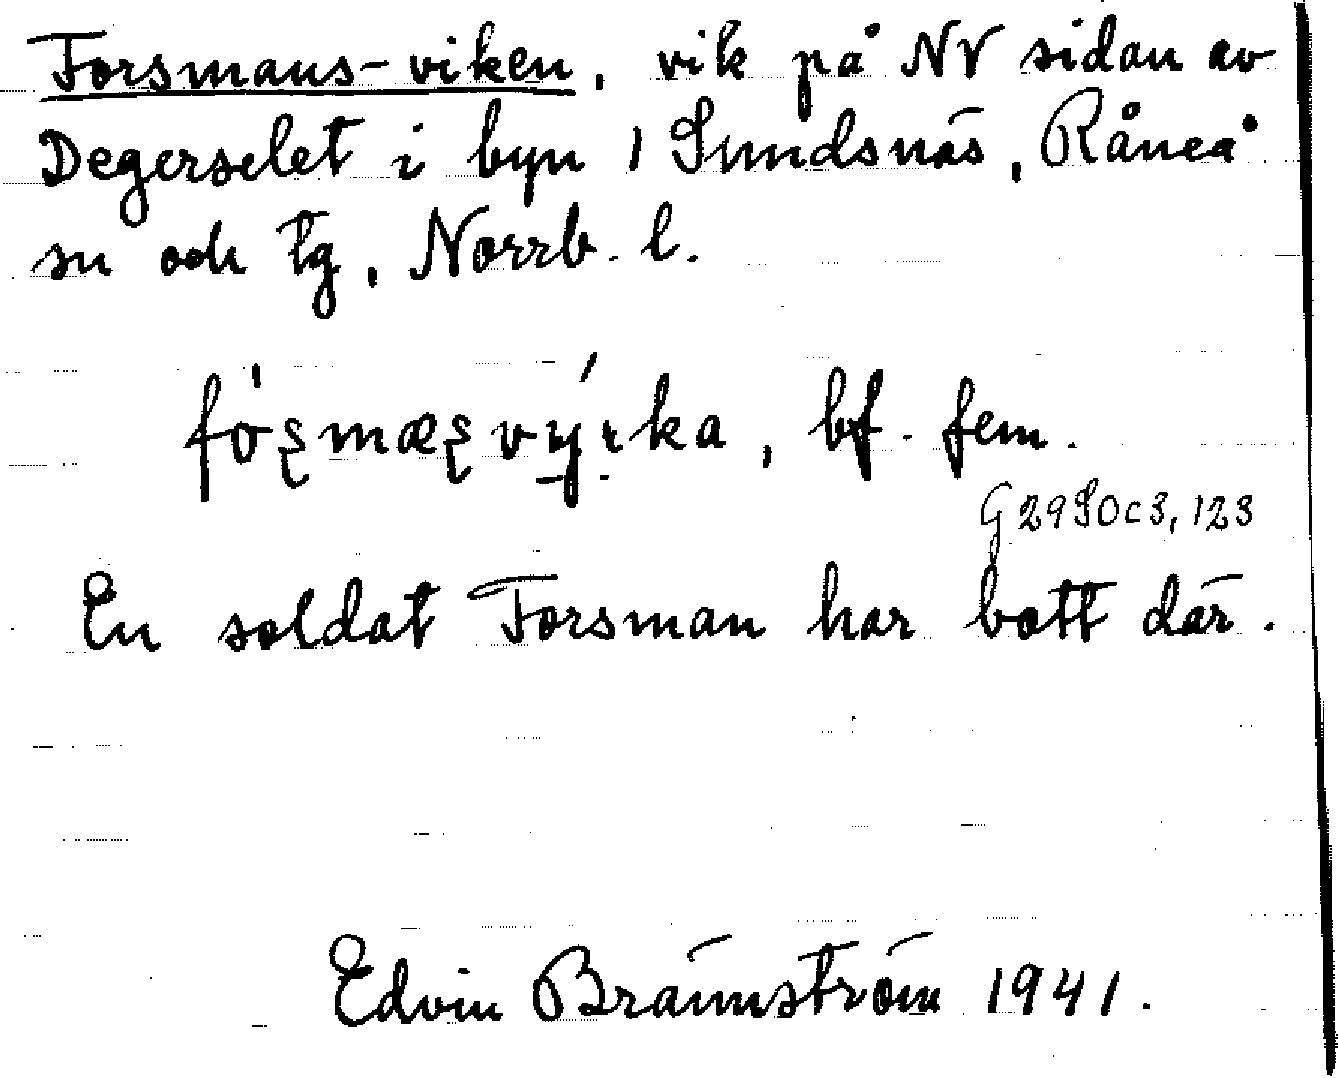 Forsmans-viken, vik på NV sidan av
Degerselet i byn 1 Sundsnäs, Råneå
sn och tg, Norrb. l.
bf. fem.
G 29 SOc3, 123
En soldat Forsman har bott där.
Edvin Brännström 1941.